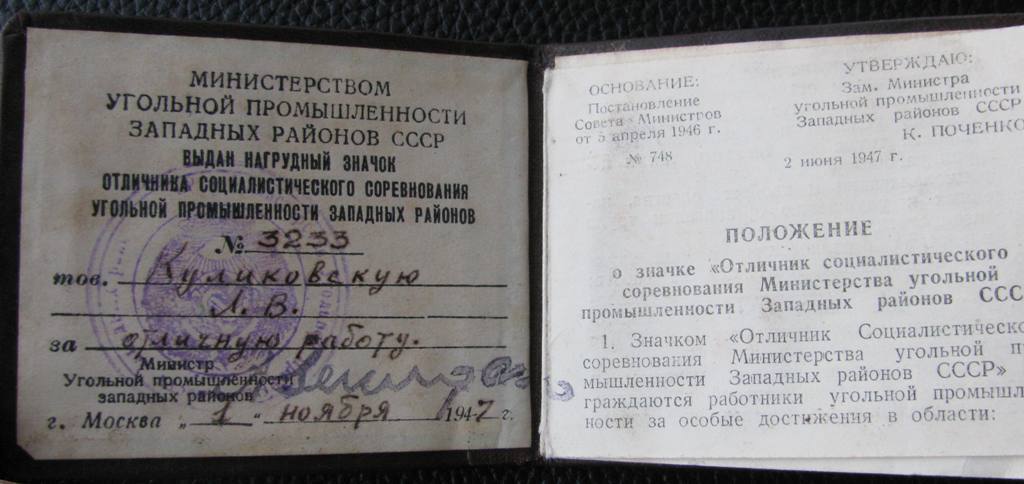 МИНИСТЕРСТВОМ
УГОЛЬНОЙ ПРОМЫШЛЕННОСТИ
ЗАПАДНЫХ РАЙОНОВ СССР
ВЫДАН НАГРУДНЫЙ ЗНАЧОК
ОТЛИЧНИКА СОЦИАЛИСТИЧЕСКОГО СОРЕВНОВАНИЯ
УГОЛЬНОЙ ПРОМЫШЛЕННОСТИ ЗАПАДНЫХ РАЙОНОВ
№ 3233
тов. Куликовскую
Л. В.
за отличную работу.
Министр
Угольной промышленности
западных районов
г. Москва „1“ ноября 1947 г.
ОСНОВАНИЕ:
Постановление
Совета Министров
от 5 апреля 1946 г.
№ 748
УТВЕРЖДАЮ:
Зам. Министра
угольной промышленности
Западных районов СССР
К. ПОЧЕНКО
2 июня 1947 г.
ПОЛОЖЕНИЕ
о значке «Отличник социалистического
соревнования Министерства угольной
промышленности Западных районов ССС
1. Значком «Отличник Социалистическо
соревнования Министерства угольной п
мышленности Западных районов СССР»
граждаются работники угольной промышл
ности за особые достижения в области: